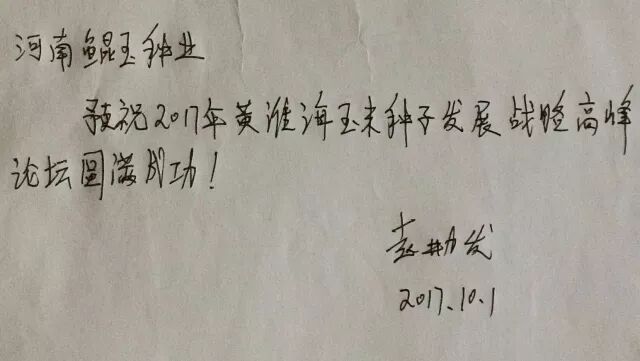 河南鲲玉种业
预祝2017年黄淮海玉米种子发展战略高峰
论坛圆满成功！
发
2017.10.1